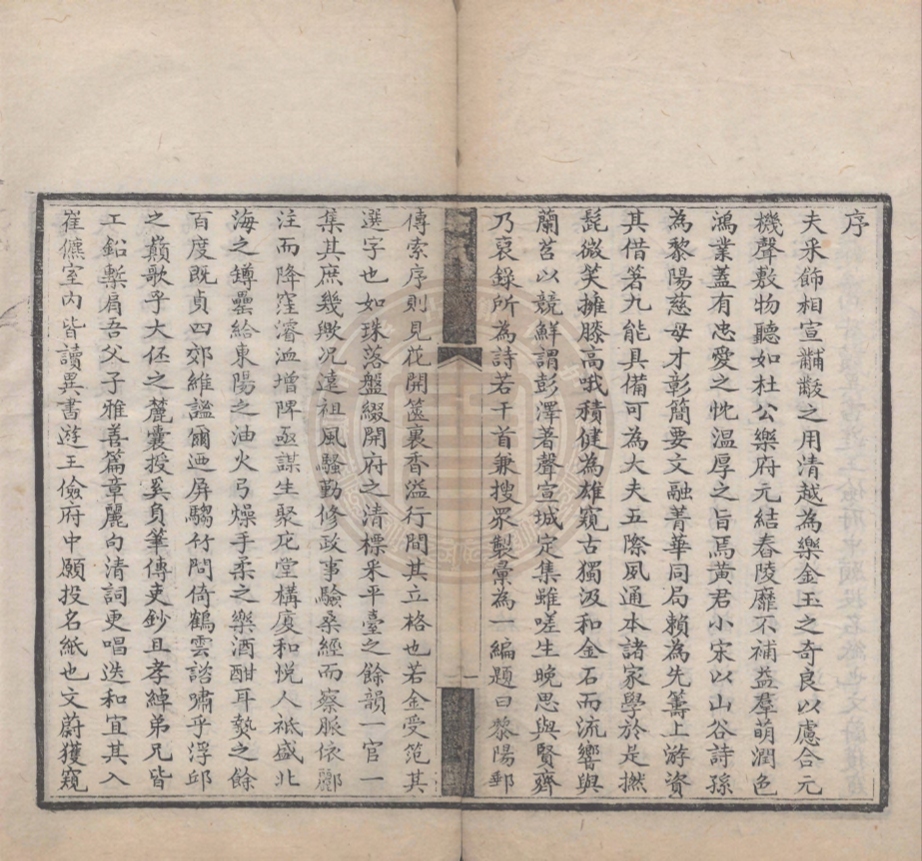 序
夫采飾相宣黼黻之用清越為樂金玉之奇良以慮合元
機聲敷物聽如杜公樂府元結舂陵靡不補益羣萌潤色
鴻業蓋有忠愛之忱溫厚之旨焉黃君小宋以山谷詩孫
為黎陽慈母才彰簡要文融菁華同局賴為先籌上游資
其借箸九能具備可為大夫五際夙通本諸家學於是撚
髭微笑擁膝高哦積健為雄窺古獨汲和金石而流響與
蘭苕以競鮮謂彭澤著聲宣城定集雖嗟生晚思與賢齊
乃裒錄所為詩若干首兼搜眾製彙為一編題曰黎陽郵
一
傳索序則見花開篋裏香溢行間其立格也若金受笵其
選字也如珠落盤綴開府之清標采平臺之餘韻一官一
集其庶幾歟况遠祖風騷勤修政事驗桑經而察脈依酈
注而降窪濬洫增陴亟謀生聚庀堂構廈和悅人祗盛北
海之罇罍給東陽之油火弓燥手柔之樂酒酣耳熱之餘
百度既貞四郊維謐爾迺屏騶竹間倚鶴雲諮嘯乎浮邱
之巔歌乎大伾之麓囊授奚負筆傳吏鈔且孝綽弟兄皆
工鉛槧扃吾父子雅善篇章麗句清詞更唱迭和宜其入
崔儦室內皆讀異書遊王儉府中願投名紙也文蔚獲窺